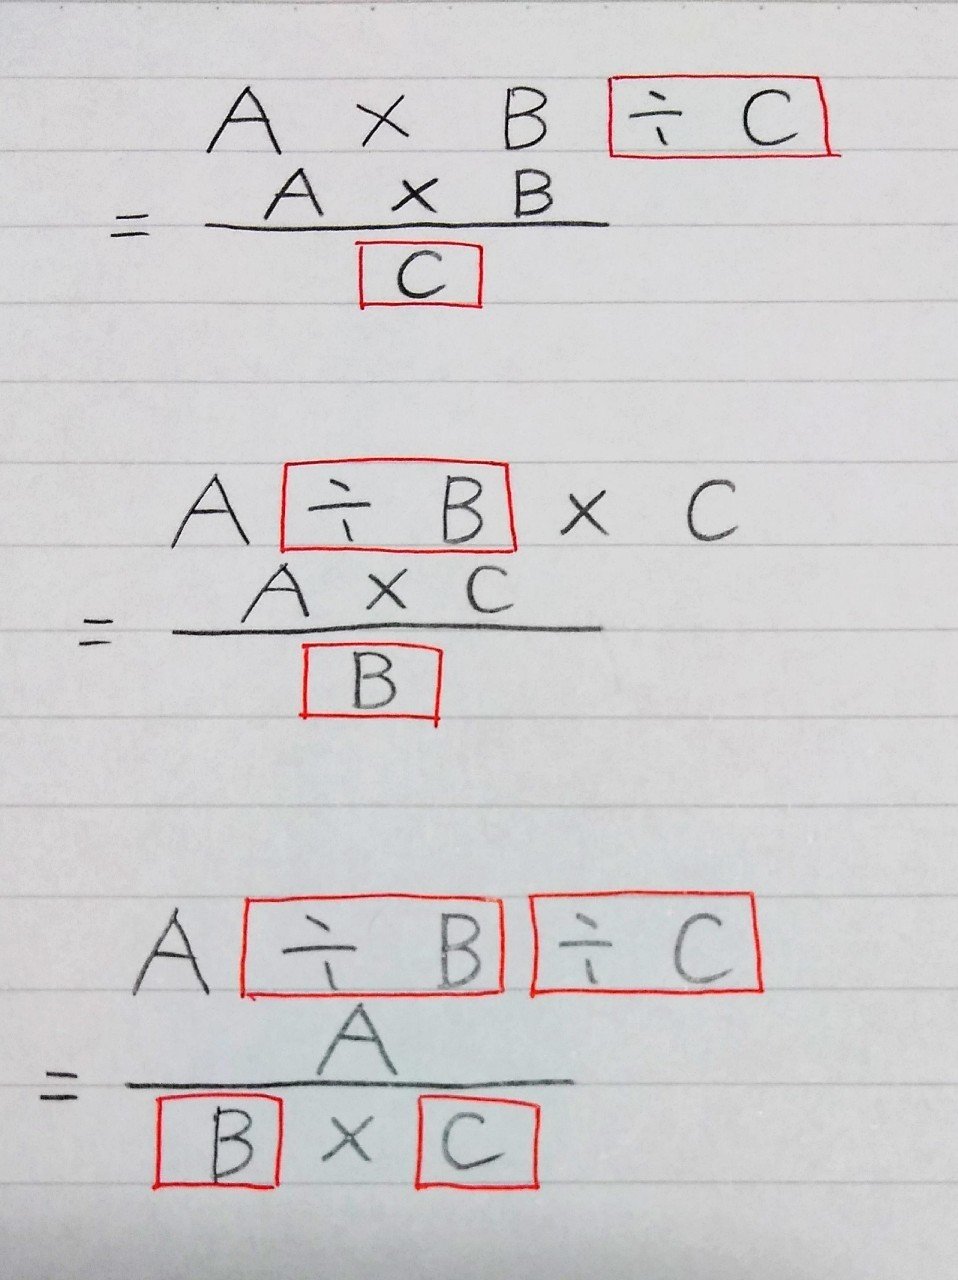 A × B ÷ C
A × B
=
C
A ÷ B × C
A × C
=
B
A ÷ B ÷ C
A
=
B × C